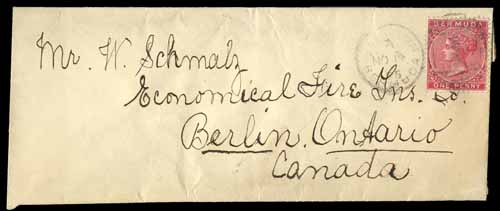 BERMUDA
ONE PENNY
Mr. W. Schmalz
Economical Fire Ins. Co.
Berlin. Ontario
Canada